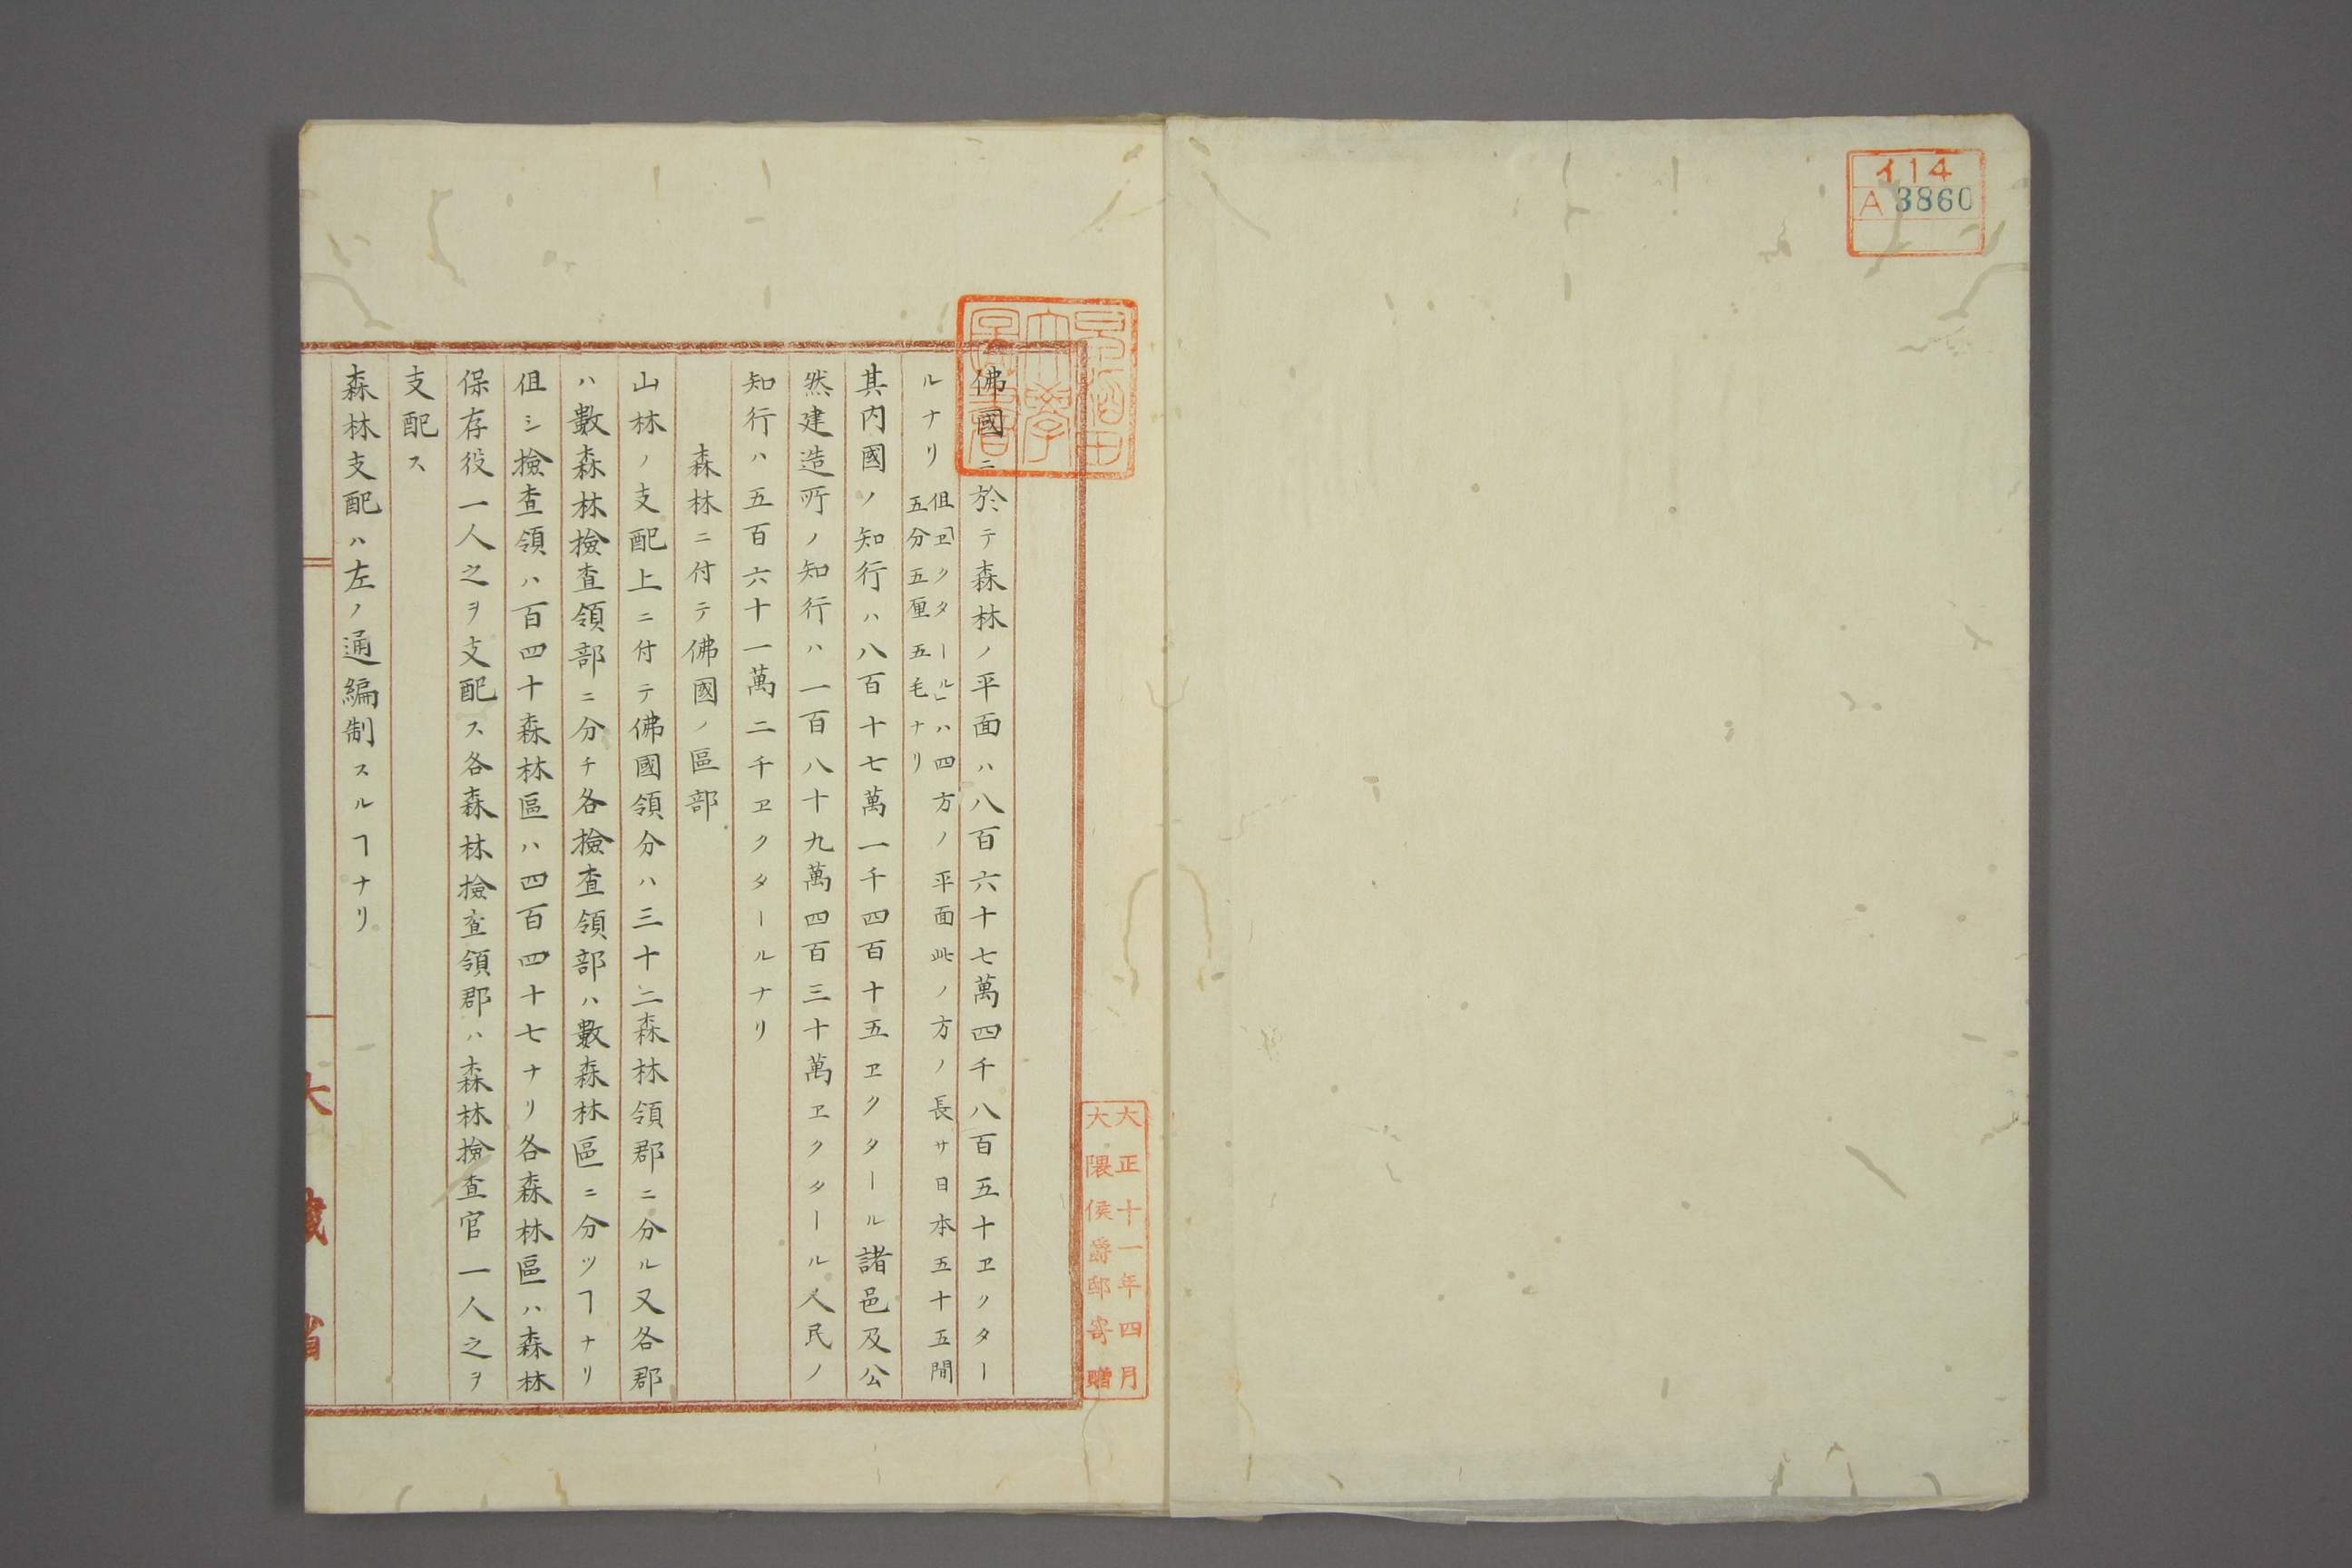 イ14
A 3860
早稲田
大學
圖書
大正十一年四月
大隈侯爵邸寄贈
佛國ニ於テ森林ノ平面ハ八百六十七萬四千八百五十ヱクター
ルナリ
伹「ヱクタール」ハ四方ノ平面此ノ方ノ長サ日本五十五間
五分五厘五毛ナリ
其内國ノ知行ハ八百十七萬一千四百十五ヱクタール諸邑及公
然建造所ノ知行ハ一百八十九萬四百三十萬ヱクタール人民ノ
知行ハ五百六十一萬二千ヱクタールナリ
森林ニ付テ佛國ノ區部
山林ノ支配上ニ付テ佛國領分ハ三十二森林領郡ニ分ル又各郡
ハ數森林撿査領部ニ分チ各撿査領部ハ數森林區ニ分ツヿナリ
伹シ撿査領ハ百四十森林區ハ四百四十七ナリ各森林區ハ森林
保存役一人之ヲ支配ス各森林撿査領郡ハ森林撿査官一人之ヲ
支配ス
森林支配ハ左ノ通編制スルヿナリ
大藏省